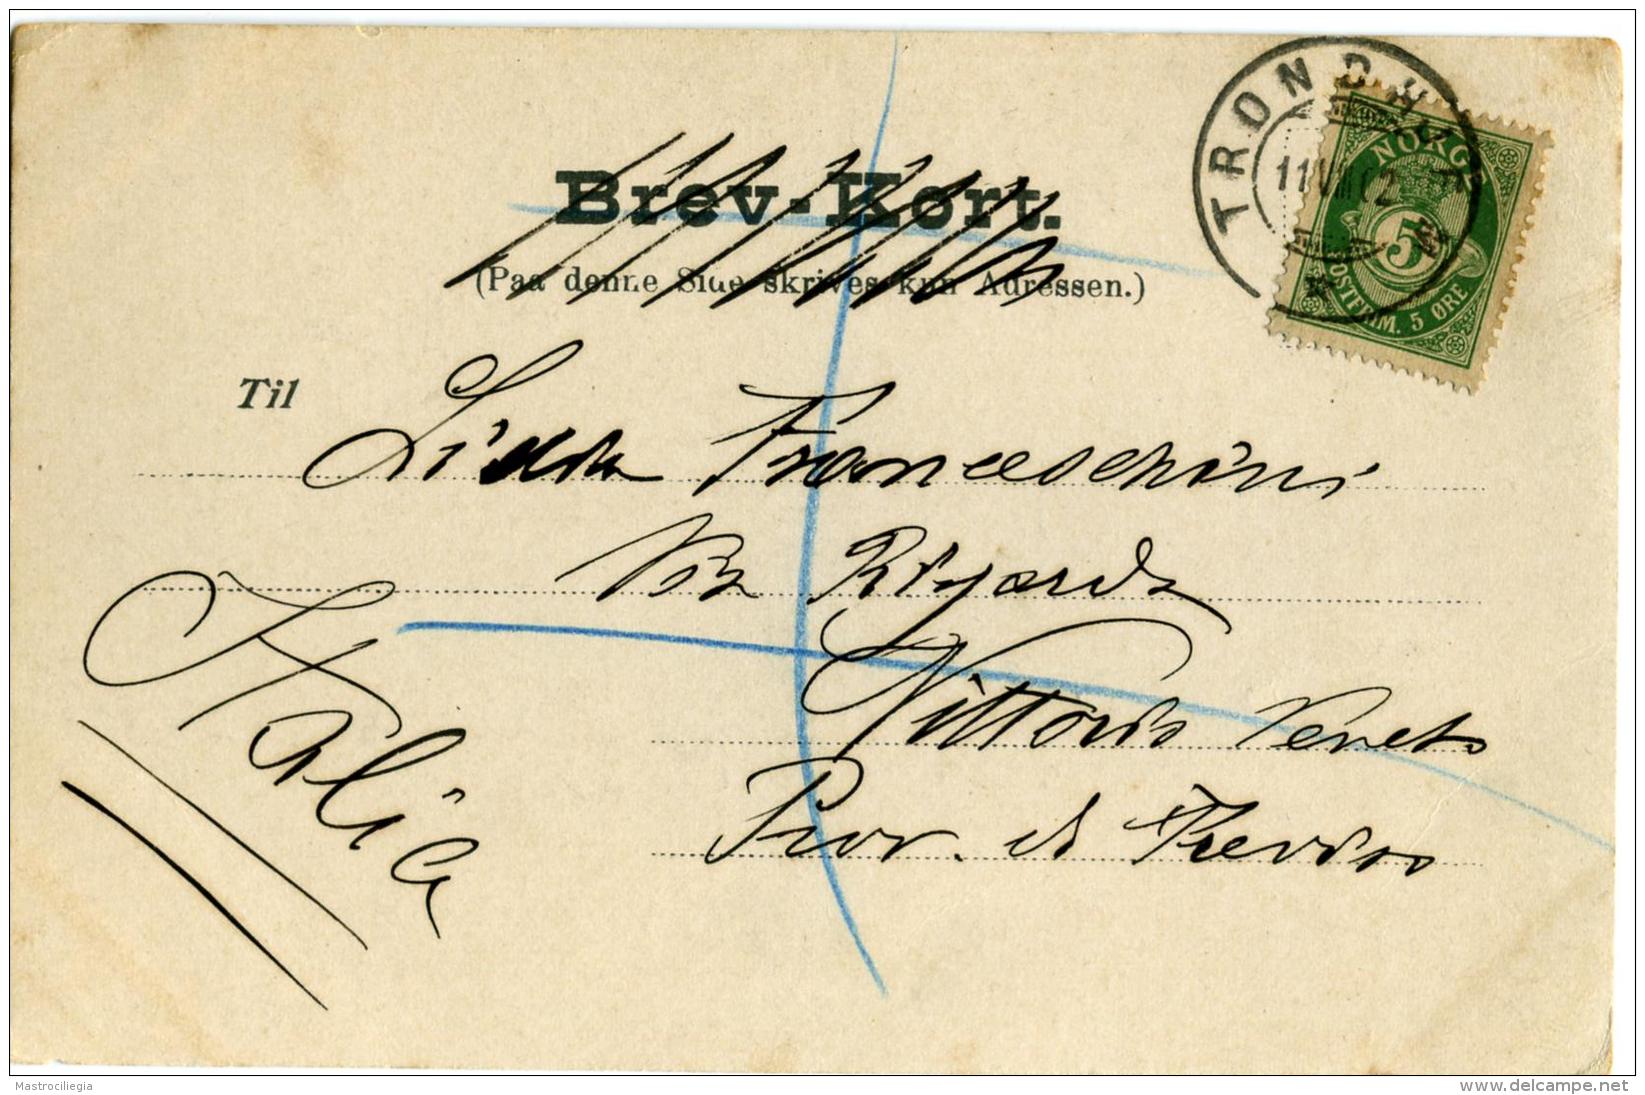 Brev-Kort.
(Paa denne Side skrives kun Adressen.)
TRONDHJEM
11 VIII 02
NORGE
5
POSTFRIM. 5 ØRE
Til
Lidia Franceschini
Via
Vittorio Veneto
Prov. di Treviso
Italia
Mastrociliegia
delcampe.net